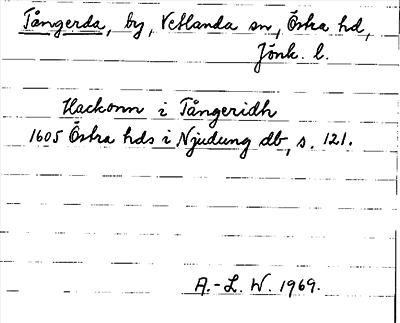 Tångerda, by, Vetlanda sn, Östra hd,
Jönk. l.
Hackonn i Tångeridh
1605 Östra hds i Njudung db, s. 121.
A.-L. W. 1969.